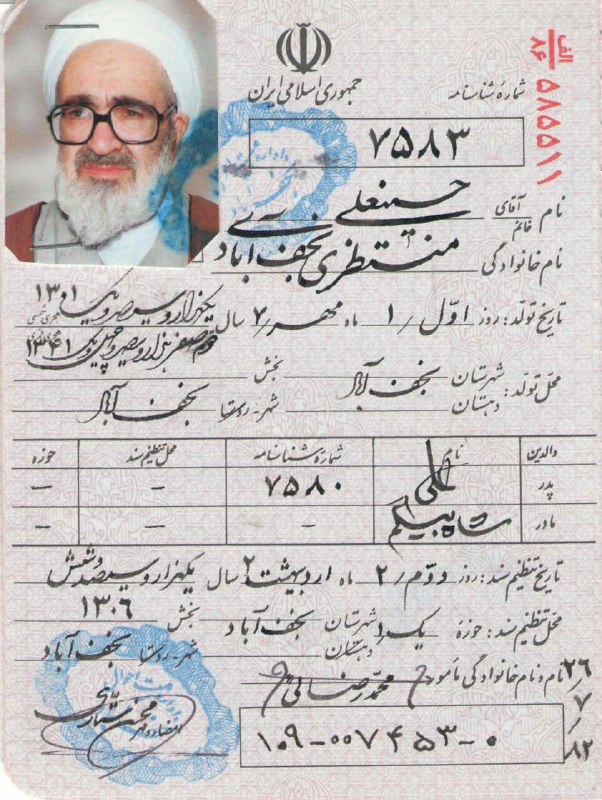 جمهوری اسلامی ایران
شمارهٔ شناسنامه
الف
۸۶
۵۸۵۵۱۱
۷۵۸۳
نام آقای خانم حسینعلی
نام خانوادگی منتظری نجف آبادی
تاریخ تولد: روز اوّل / ۱ ماه مهر / ۷ سال یکهزار و سیصد و یک ۱۳۰۱
هزار و سیصد و چهل و یک ۱۳۴۱
محل تولد: شهرستان نجف آباد بخش
دهستان شهر-روستا نجف آباد
والدین نام شمارهٔ شناسنامه محل تنظیم سند حوزه
پدر علی ۷۵۸۰ — —
مادر شاه بیگم – — —
تاریخ تنظیم سند: روز دوّم / ۲ ماه اردیبهشت ۲ سال یکهزار و سیصد و شش
۱۳۰۶
محل تنظیم سند: حوزه یک ۱ شهرستان نجف آباد بخش
دهستان شهر-روستا نجف آباد
نام و نام خانوادگی مأمور محمدرضا
۲۶/۷/۸۲
امضاء و مهر
۱۰۹-۰۰۷۴۵۳-۰